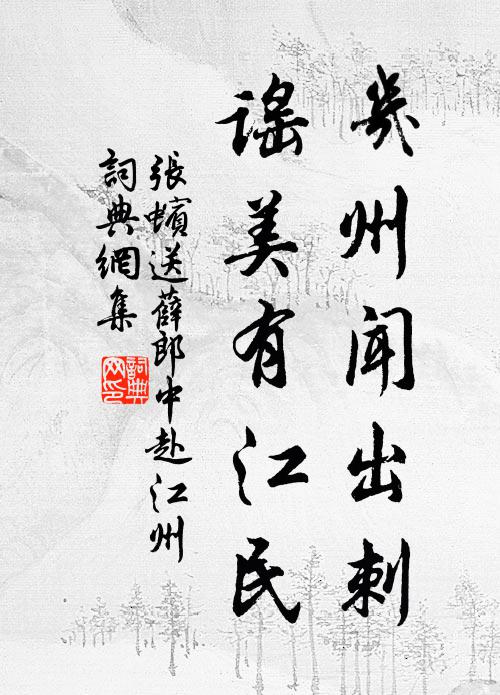 幾州聞出刺
謠美有江民
張蠙送薛郎中赴江州
詞典網集
詞典
网印